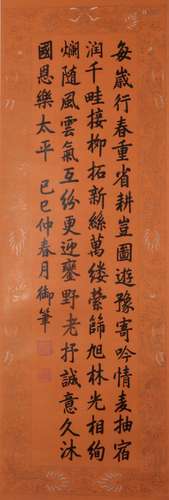 每歲行春重省耕豈圖遊豫寄吟情麦抽宿
润千畦接柳拓新絲萬缕縈篩旭林光相絢
爛随風雲氣互纷更迎鑾野老抒誠意久沐
國恩樂太平　己巳仲春月御筆